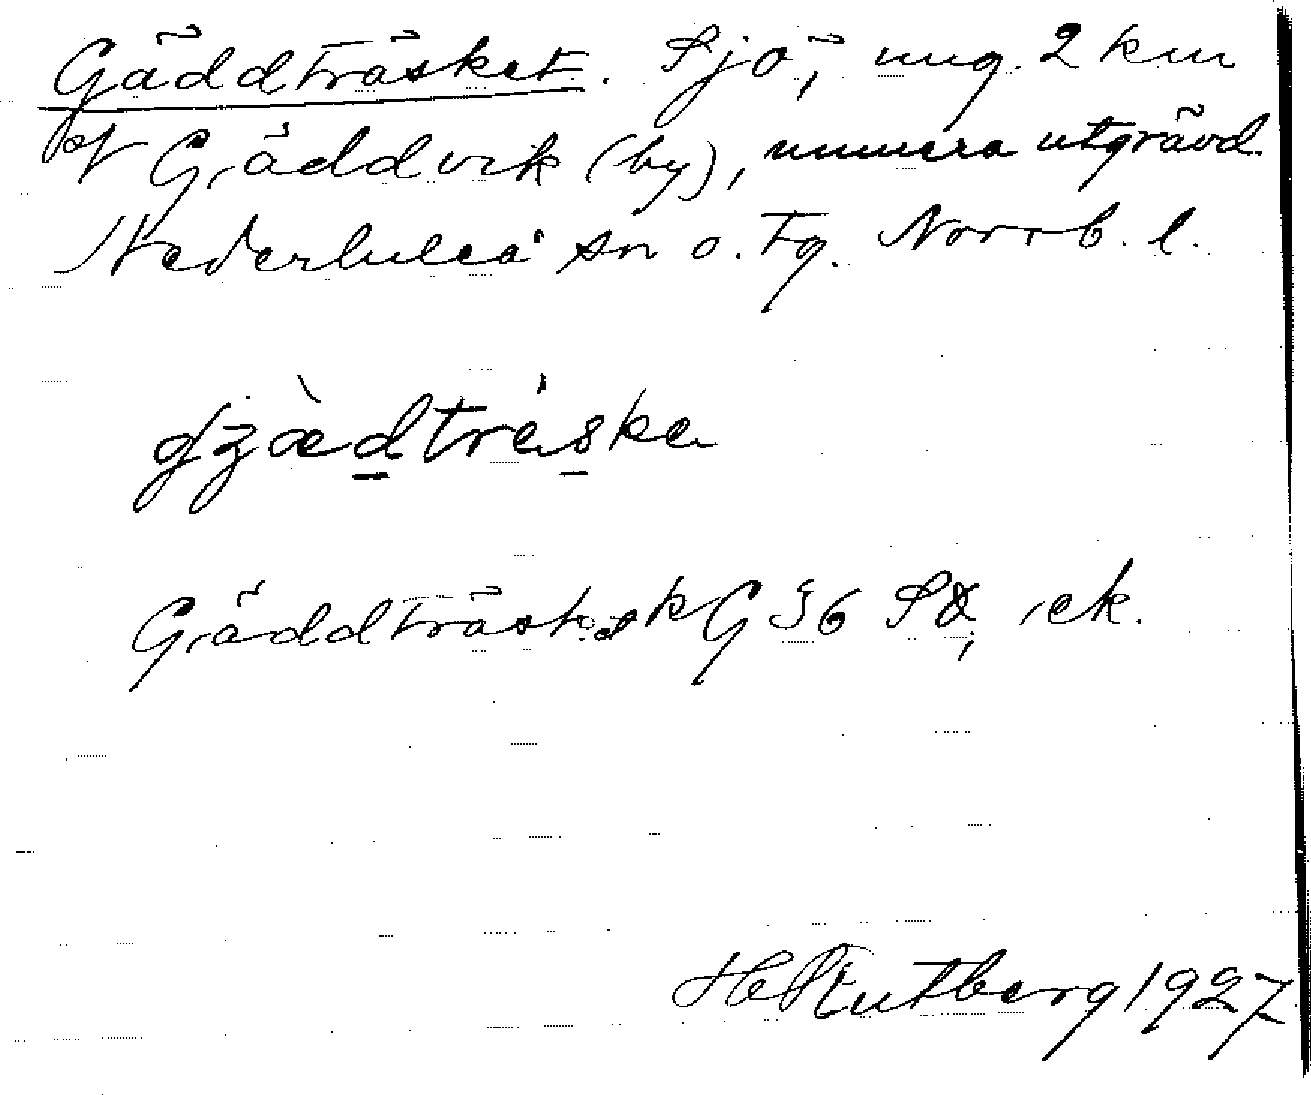 Gäddträsket. Sjö, ung. 2 km
af Gäddvik (by), numera utgrävd.
Nederluleå sn o. tg. Norrb. l.
gʒæ̀dtrǽska
Gäddträsk ek G 36 SÖ, ek.
H Rutberg 1927